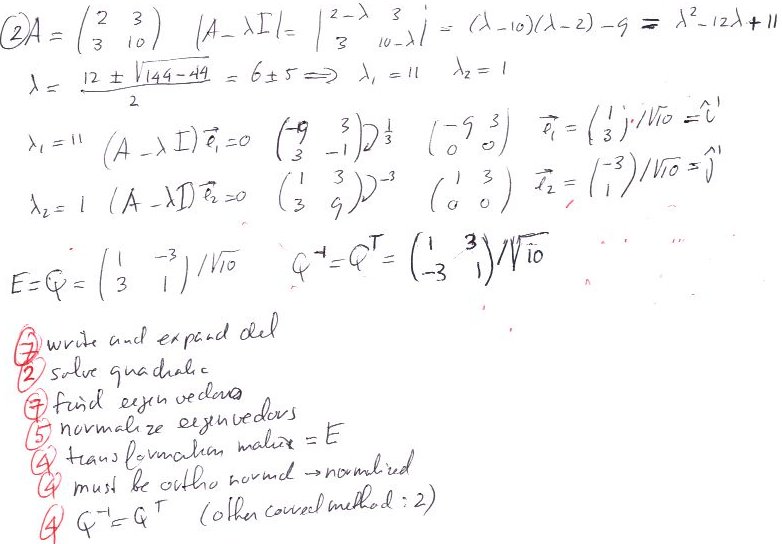 ② A = (2 3; 3 10) |A - λI| = |2-λ 3; 3 10-λ| = (λ-10)(λ-2) - 9 = λ² - 12λ + 11
λ = (12 ± √(144-44))/2 = 6 ± 5 ⟹ λ₁ = 11 λ₂ = 1
λ₁ = 11 (A - λI)e⃗₁ = 0 (-9 3; 3 -1) ⊃ 1/3 (-9 3; 0 0) e⃗₁ = (1; 3)/√10 = î'
λ₂ = 1 (A - λI)e⃗₂ = 0 (1 3; 3 9) ⊃ -3 (1 3; 0 0) e⃗₂ = (-3; 1)/√10 = ĵ'
E = Q = (1 -3; 3 1)/√10 Q⁻¹ = Qᵀ = (1 3; -3 1)/√10
⑦ write and expand det
② solve quadratic
⑦ find eigenvectors
⑤ normalize eigenvectors
④ transformation matrix = E
④ must be orthonormal → normalized
④ Q⁻¹ = Qᵀ (other correct method : 2)